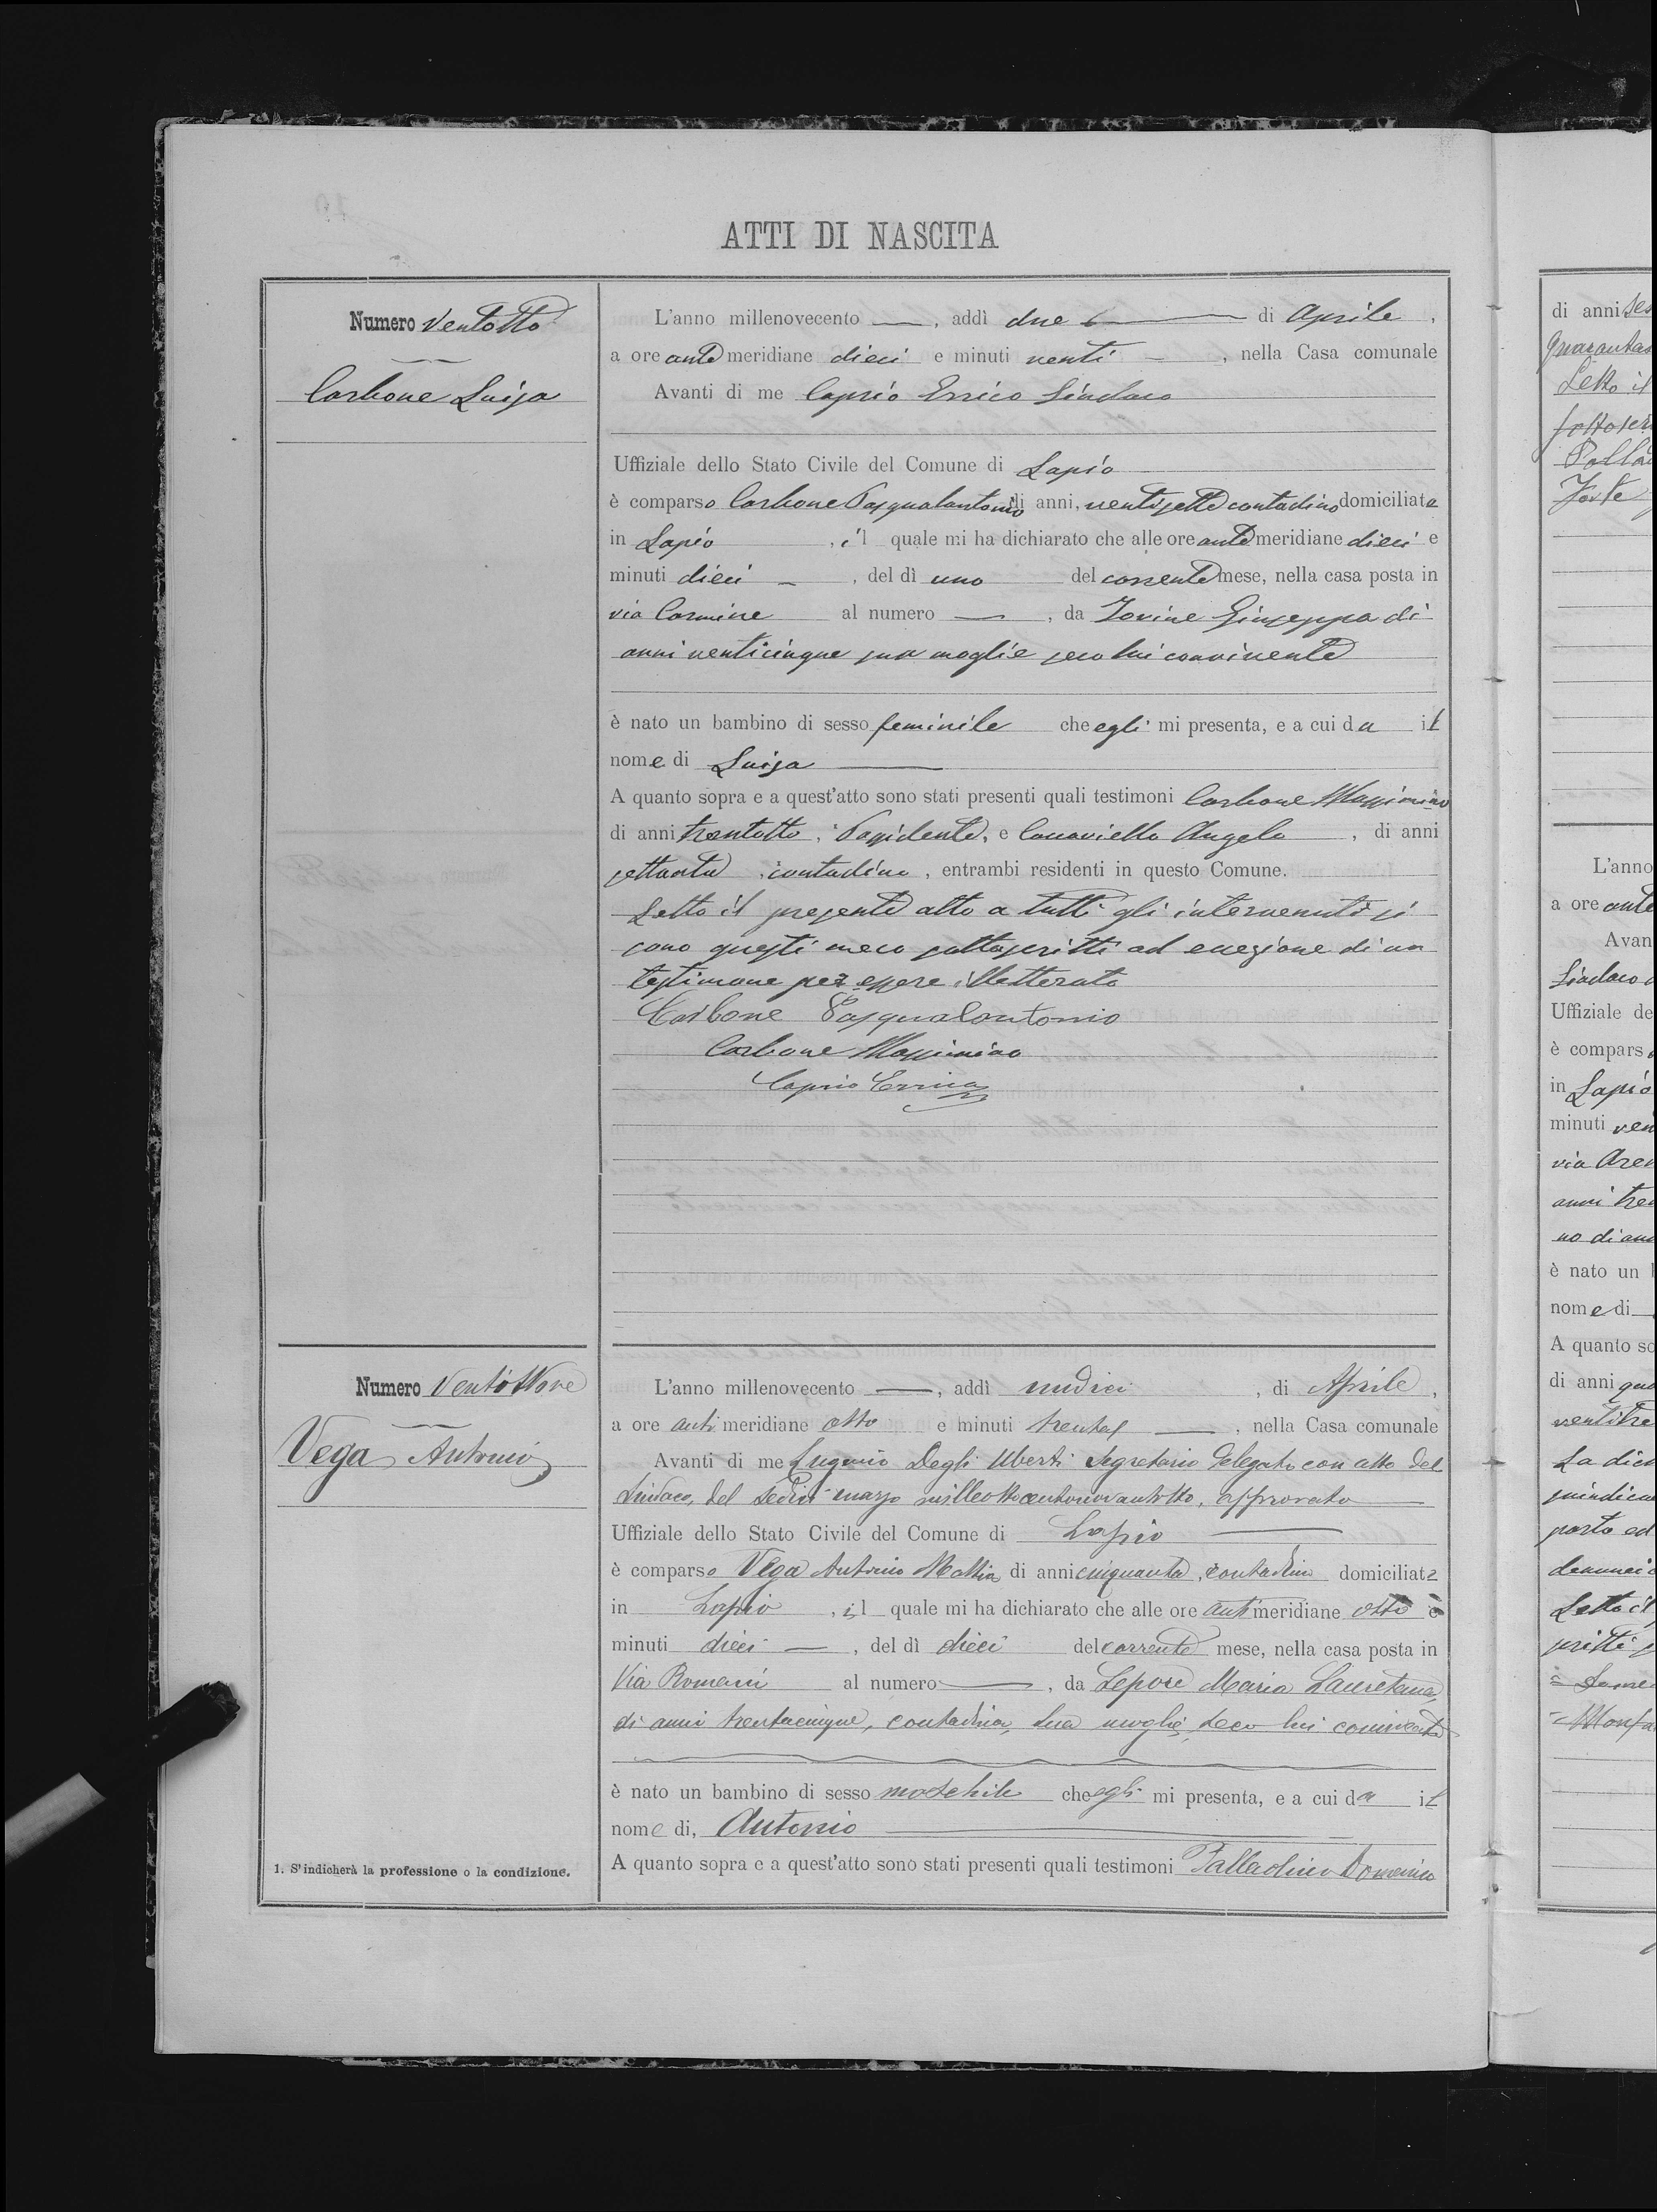 ATTI DI NASCITA
Numero Ventotto
Carbone Luisa
L'anno millenovecento —, addì due — di Aprile,
a ore ante meridiane dieci e minuti venti —, nella Casa comunale
Avanti di me Caprio Errico Sindaco
Uffiziale dello Stato Civile del Comune di Lapio
è comparso Carbone Pasqualantonio di anni, ventisette contadino domiciliato
in Lapio, il quale mi ha dichiarato che alle ore ante meridiane dieci e
minuti dieci —, del dì uno del corrente mese, nella casa posta in
via Carmine al numero —, da Iovine Giuseppa di
anni venticinque sua moglie seco lui convivente
è nato un bambino di sesso feminile che egli mi presenta, e a cui da il
nome di Luisa —
A quanto sopra e a quest'atto sono stati presenti quali testimoni Carbone Massimino
di anni trentotto, Possidente, e Angelo, di anni
settanta, contadino, entrambi residenti in questo Comune.
Letto il presente atto a tutti gli intervenuti si
sono questi meco sottoscritti ad eccezione di un
testimone per essere illetterato
Carbone Pasqualantonio
Carbone Massimino
Caprio Errico
Numero Ventinove
Vega Antonio
L'anno millenovecento —, addì undici, di Aprile,
a ore anti meridiane otto e minuti trenta —, nella Casa comunale
Avanti di me Eugenio Degli Uberti Segretario Delegato con atto del
Sindaco, del sedici marzo milleottocentonovantotto, approvato —
Uffiziale dello Stato Civile del Comune di Lapio —
è comparso Vega Antonio Mattia di anni cinquanta, contadino domiciliato
in Lapio, il quale mi ha dichiarato che alle ore anti meridiane otto e
minuti dieci —, del dì dieci del corrente mese, nella casa posta in
Via Romani al numero —, da Lepore Maria Lauretana,
di anni trentacinque, contadina, sua moglie, seco lui convivente
è nato un bambino di sesso maschile che egli mi presenta, e a cui da il
nome di, Antonio —
A quanto sopra e a quest'atto sono stati presenti quali testimoni Palladino Domenico
1. S'indicherà la professione o la condizione.
di anni
Letto il
L'anno
a ore ante
Avan
Sindaco
Uffiziale de
è compars
in Lapio
minuti
via
anni
è nato un
nome di
A quanto so
di anni
La dich
Letto il